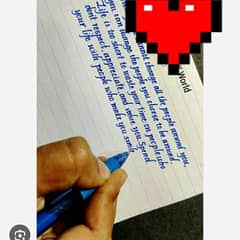 cannot change all the people around you,
you can change the people you choose to be around.
Life is too short to waste your time on people who
don't respect, appreciate, and value you. Spend
your life with people who make you smile
World